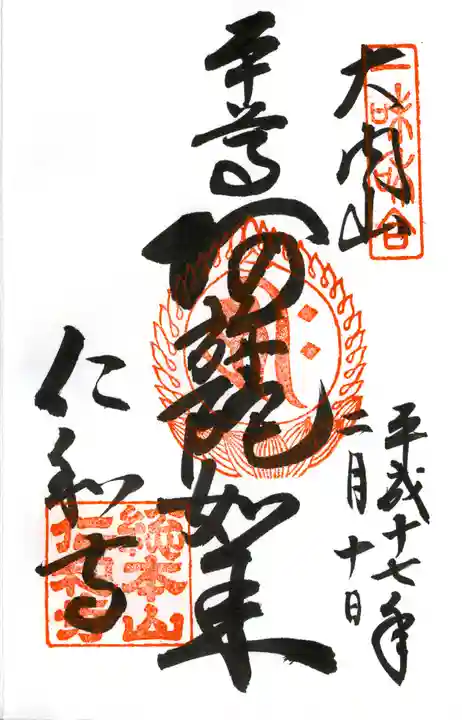 大内山
一味和合
平成十七年
二月十日
本尊
阿弥陀如来
仁和寺
総本山
仁和寺